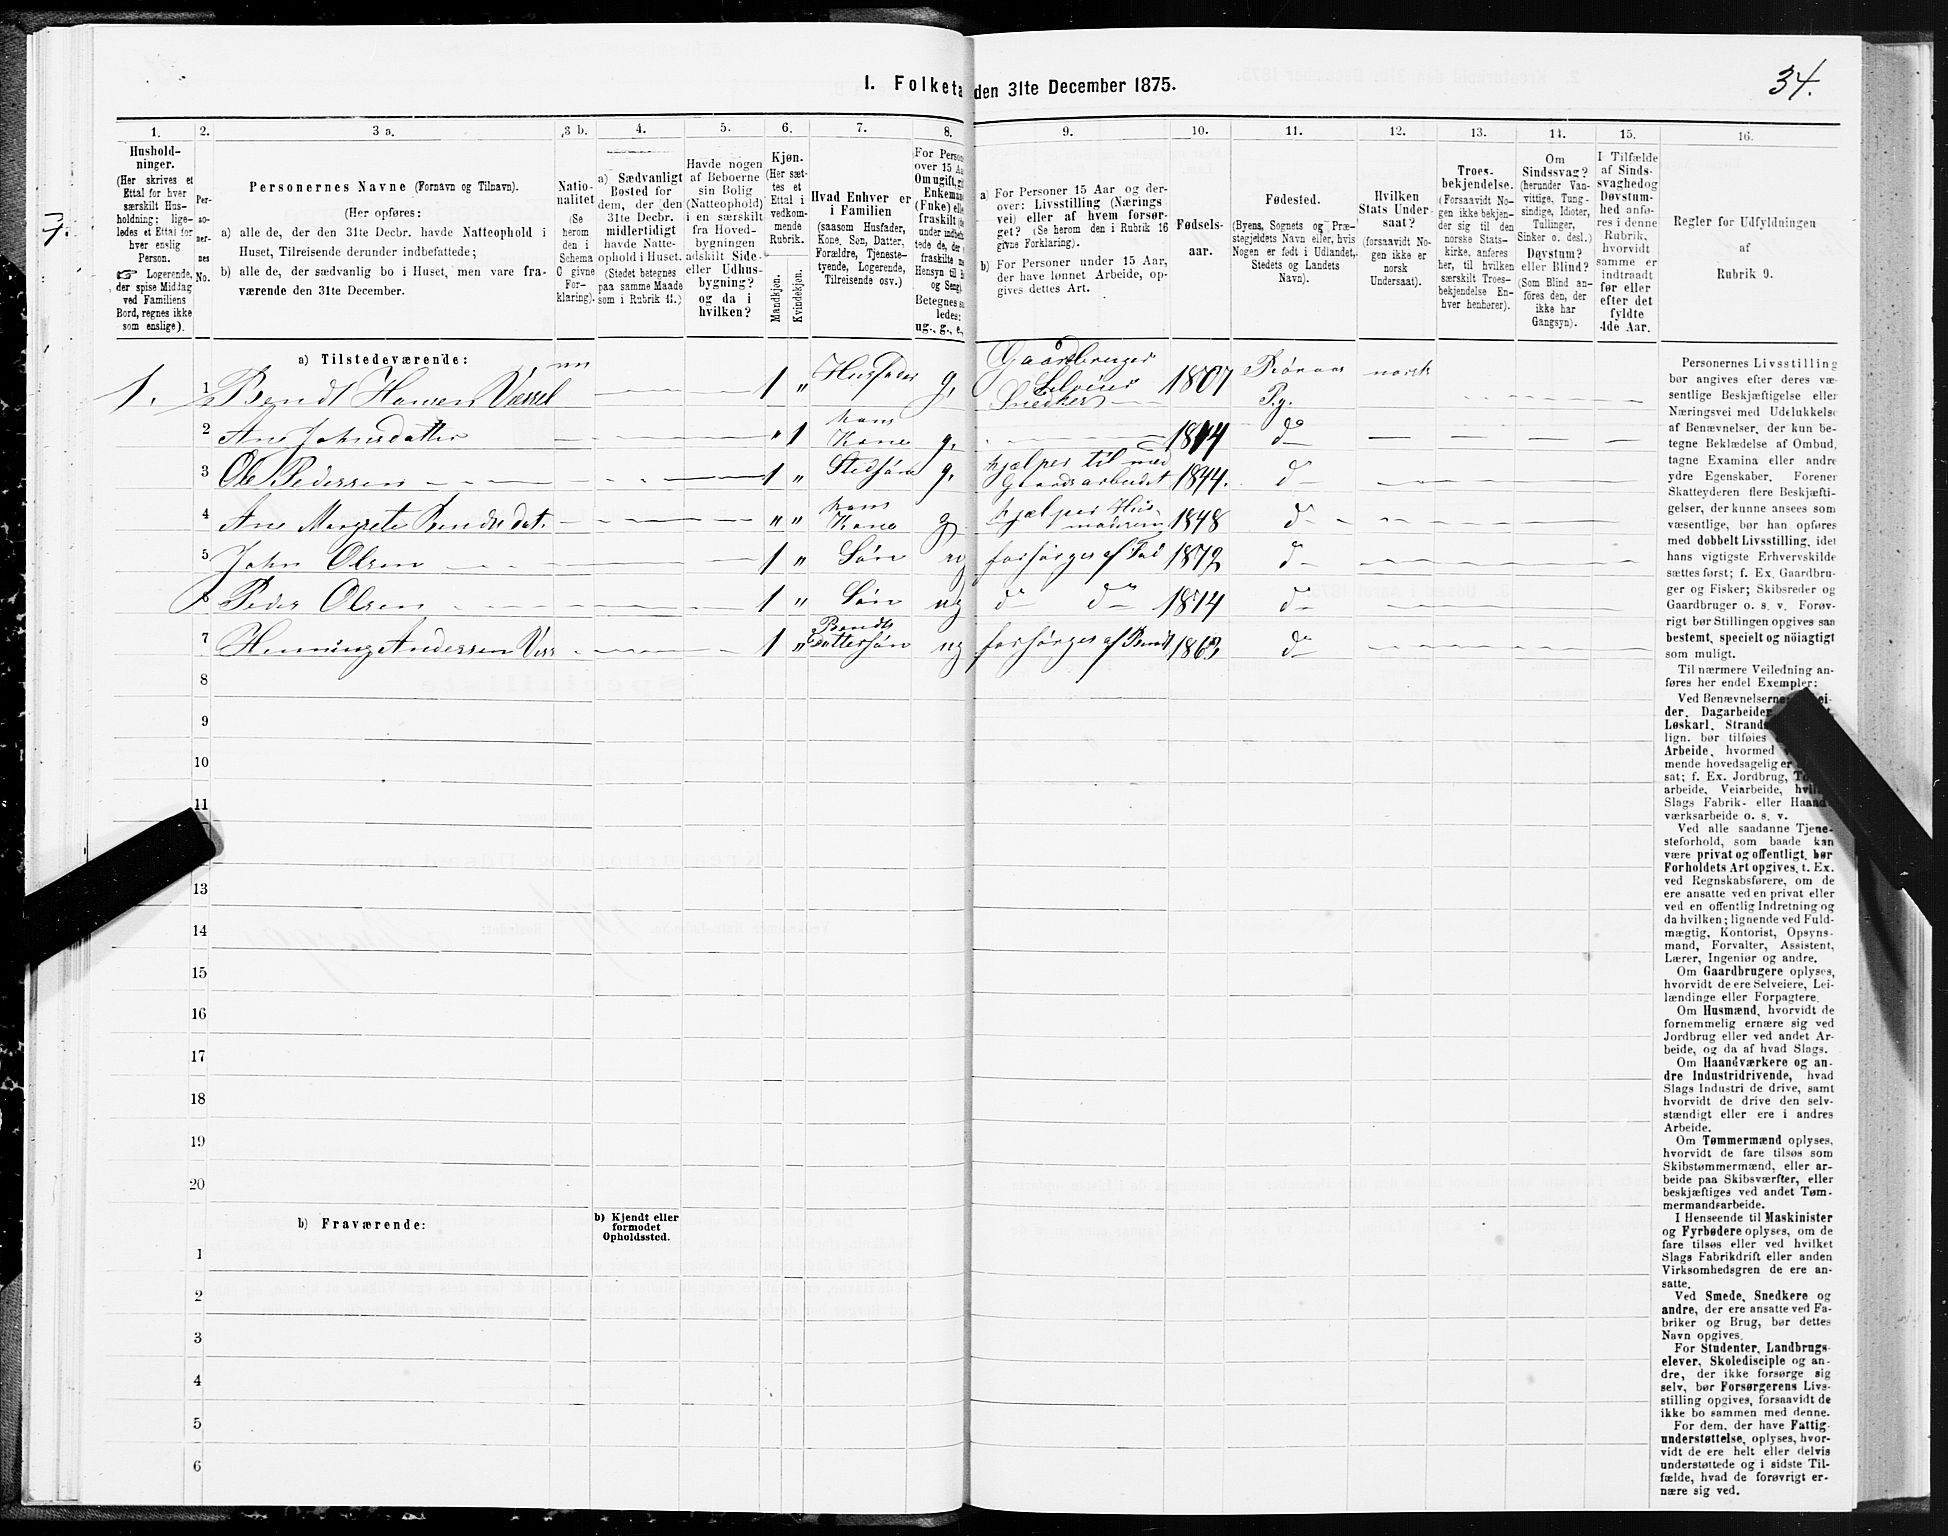 I. Folketa den 31te December 1875.
34.
7.
1. 2. 3 a. 3 b. 4. 5. 6. 7. 8. 9. 10. 11. 12. 13. 14. 15. 16.
Hushold-
ninger.
(Her skrives et
Ettal for hver
særskilt Hus-
holdning; lige-
ledes et Ettal for
hver enslig
Person.
☞ Logerende,
der spise Middag
ved Familiens
Bord, regnes ikke
som enslige).
Per-
so-
ner-
nes
No.
Personernes Navne (Fornavn og Tilnavn).
(Her opføres:
a) alle de, der den 31te Decbr. havde Natteophold i
Huset, Tilreisende derunder indbefattede;
b) alle de, der sædvanlig bo i Huset, men vare fra-
værende den 31te December.
Natio-
nalitet
(Se
herom
den i
Schema
C givne
For-
klaring).
a) Sædvanligt
Bosted for
dem, der den
31te Decbr.
midlertidigt
havde Natte-
ophold i Huset.
(Stedet betegnes
paa samme Maade
som i Rubrik 11.)
Havde nogen
af Beboerne
sin Bolig
(Natteophold)
i en særskilt
fra Hoved-
bygningen
adskilt Side-
eller Udhus-
bygning?
og da i
hvilken?
Kjøn.
(Her sæt-
tes et
Ettal i
vedkom-
mende
Rubrik.
Mandkjøn.
Kvindekjøn.
Hvad Enhver er
i Familien
(saasom Husfader,
Kone, Søn, Datter,
Forældre, Tjeneste-
tyende, Logerende,
Tilreisende osv.)
For Perso
over 15 Aa
Om ugift, gi
Enkeman
(Fnke) elle
fraskilt (h
under indbefa
tede de, der e
fraskilte m
Hensyn til B
og Seng).
Betegnes sa
ledes:
ug., g., e.,
a) For Personer 15 Aar og der-
over: Livsstilling (Nærings
vei) eller af hvem forsør-
get? (Se herom den i Rubrik 16
givne Forklaring).
b) For Personer under 15 Aar,
der have lønnet Arbeide, op-
gives dettes Art.
Fødsels-
aar.
Fødested.
(Byens, Sognets og Præ-
stegjeldets Navn eller, hvis
Nogen er født i Udlandet,
Stedets og Landets
Navn).
Hvilken
Stats Under-
saat?
(forsaavidt No-
gen ikke er
norsk
Undersaat).
Troes-
bekjendelse.
(Forsaavidt No-
gen ikke bekjen-
der sig til den
norske Stats-
kirke, anføres
her, til hvilken
særskilt Troes-
bekjendelse En-
hver henhører).
Om
Sindssvag?
(herunder Van-
vittige, Tung-
sindige, Idioter,
Tullinger,
Sinker o. desl.)
Døvstum?
eller Blind?
(Som Blind an-
føres den, der
ikke har
Gangsyn).
I Tilfælde
af Sinds-
svaghed og
Døvstum-
hed anfø-
res i denne
Rubrik,
hvorvidt
samme er
indtraadt
før eller
efter det
fyldte
4de Aar.
Regler for Udfyldningen
af
Rubrik 9.
a) Tilstedeværende:
1. 1 Bendt Hansen Vessel nn 1 " Husfader g, Gaardbruger Selveier Snedker 1807 Pg. norsk
2 Ane Johnsdatter " 1 hans Kone g, 1814 do
3 Ole Pedersen 1 " Stedsøn g, hjælper til med Gaardsarbeidet 1844. do
4 Ane Margrete Bendtsdat. " " hans Kone g hjælper Hus- moderen 1848 do
5 John Olsen 1 " Søn ug forsørges af Fad 1872 do
6 Peder Olsen 1 " Søn ug do do 1874 do
7 Henning Andersen Vess 1 " Bendts Dattersøn ug forsørges af Bendt 1863 do
8
9
10
11
13
14
15
16
17
18
19
20
b) Fraværende:
b) Kjendt eller
formodet
Opholdssted.
1
2
3
4
5
6
Personernes Livsstilling
bør angives efter deres væ-
sentlige Beskjæftigelse eller
Næringsvei med Udelukkelse
af Benævnelser, der kun be-
tegne Beklædelse af Ombud,
tagne Examina eller andre
ydre Egenskaber. Forener
Skatteyderen flere Beskjæfti-
gelser, der kunne ansees som
væsentlige, bør han opføres
med dobbelt Livsstilling, idet
hans vigtigste Erhvervskilde
sættes først; f. Ex. Gaardbru-
ger og Fisker; Skibsreder og
Gaardbruger o. s. v. Forøv-
rigt bør Stillingen opgives saa
bestemt, specielt og nöiagtigt
som muligt.
Til nærmere Veiledning an-
føres her endel Exempler:
Ved Benævnelserne:
der, Dagarbeider
Løskarl, Strands
lign. bør tilføies
Arbeide, hvormed
mende hovedsagelig er
sat; f. Ex. Jordbrug,
arbeide, Veiarbeide,
Slags Fabrik- eller Haand-
værksarbeide o. s. v.
Ved alle saadanne Tjene-
steforhold, som baade kan
være privat og offentligt, bør
Forholdets Art opgives, t. Ex.
ved Regnskabsførere, om de
ere ansatte ved en privat eller
ved en offentlig Indretning og
da hvilken; lignende ved Fuld-
mægtig, Kontorist, Opsyns-
mand, Forvalter, Assistent,
Lærer, Ingeniør og andre.
Om Gaardbrugere oplyses,
hvorvidt de ere Selveiere, Lei-
lændinge eller Forpagtere.
Om Husmænd, hvorvidt de
fornemmelig ernære sig ved
Jordbrug eller ved andet Ar-
beide, og da af hvad Slags.
Om Haandværkere og an-
dre Industridrivende, hvad
Slags Industri de drive, samt
hvorvidt de drive den selv-
stændigt eller ere i andres
Arbeide.
Om Tømmermænd oplyses,
hvorvidt de fare tilsøs som
Skibstømmermænd, eller ar-
beide paa Skibsværfter, eller
beskjæftiges ved andet Tøm-
mermandsarbeide.
I Henseende til Maskinister
og Fyrbødere oplyses, om de
fare tilsøs eller ved hvilket
Slags Fabrikdrift eller anden
Virksomhedsgren de ere an-
satte.
Ved Smede, Snedkere og
andre, der ere ansatte ved Fa-
briker og Brug, bør dettes
Navn opgives.
For Studenter, Landbrugs-
elever, Skoledisciple og an-
dre, der ikke forsørge sig
selv, bør Forsørgerens Livs-
stilling opgives, forsaavidt de
ikke bo sammen med denne.
For dem, der have Fattig-
understøttelse, oplyses, hvor-
vidt de ere helt eller delvis
understøttede og i sidste Til-
fælde, hvad de forøvrigt er-
nære sig ved.